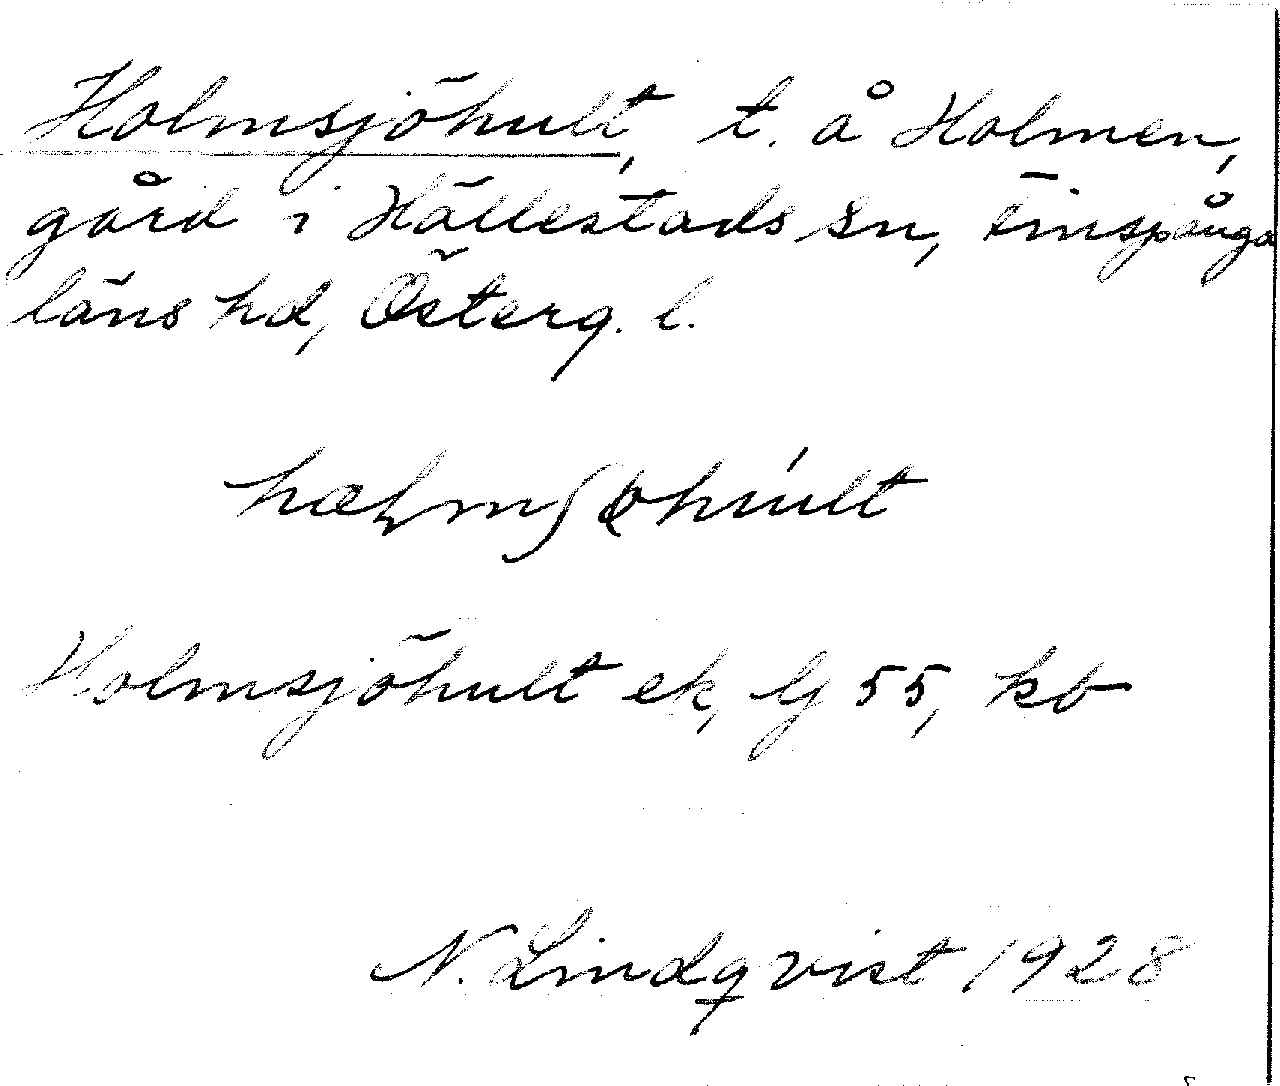 Holmsjöhult, t. å Holmen,
gård i Hällestads sn, Finspånga
läns hd, Österg. l.
Holmsjöhult ek, Gj 55, kb
N. Lindqvist 1928